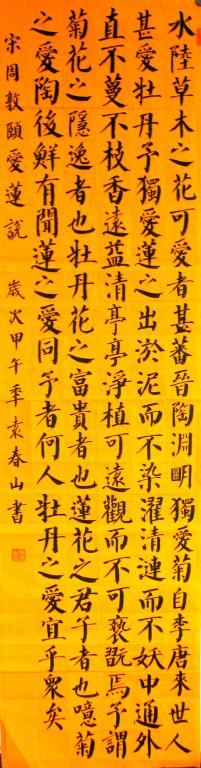 水陸草木之花可愛者甚蕃晉陶淵明獨愛菊自李唐來世人
甚愛牡丹予獨愛蓮之出淤泥而不染濯清漣而不妖中通外
直不蔓不枝香遠益清亭亭淨植可遠觀而不可褻翫焉予謂
菊花之隱逸者也牡丹花之富貴者也蓮花之君子者也噫菊
之愛陶後鮮有聞蓮之愛同予者何人牡丹之愛宜乎眾矣
宋周敦頤愛蓮說 歲次甲午秊袁春山書